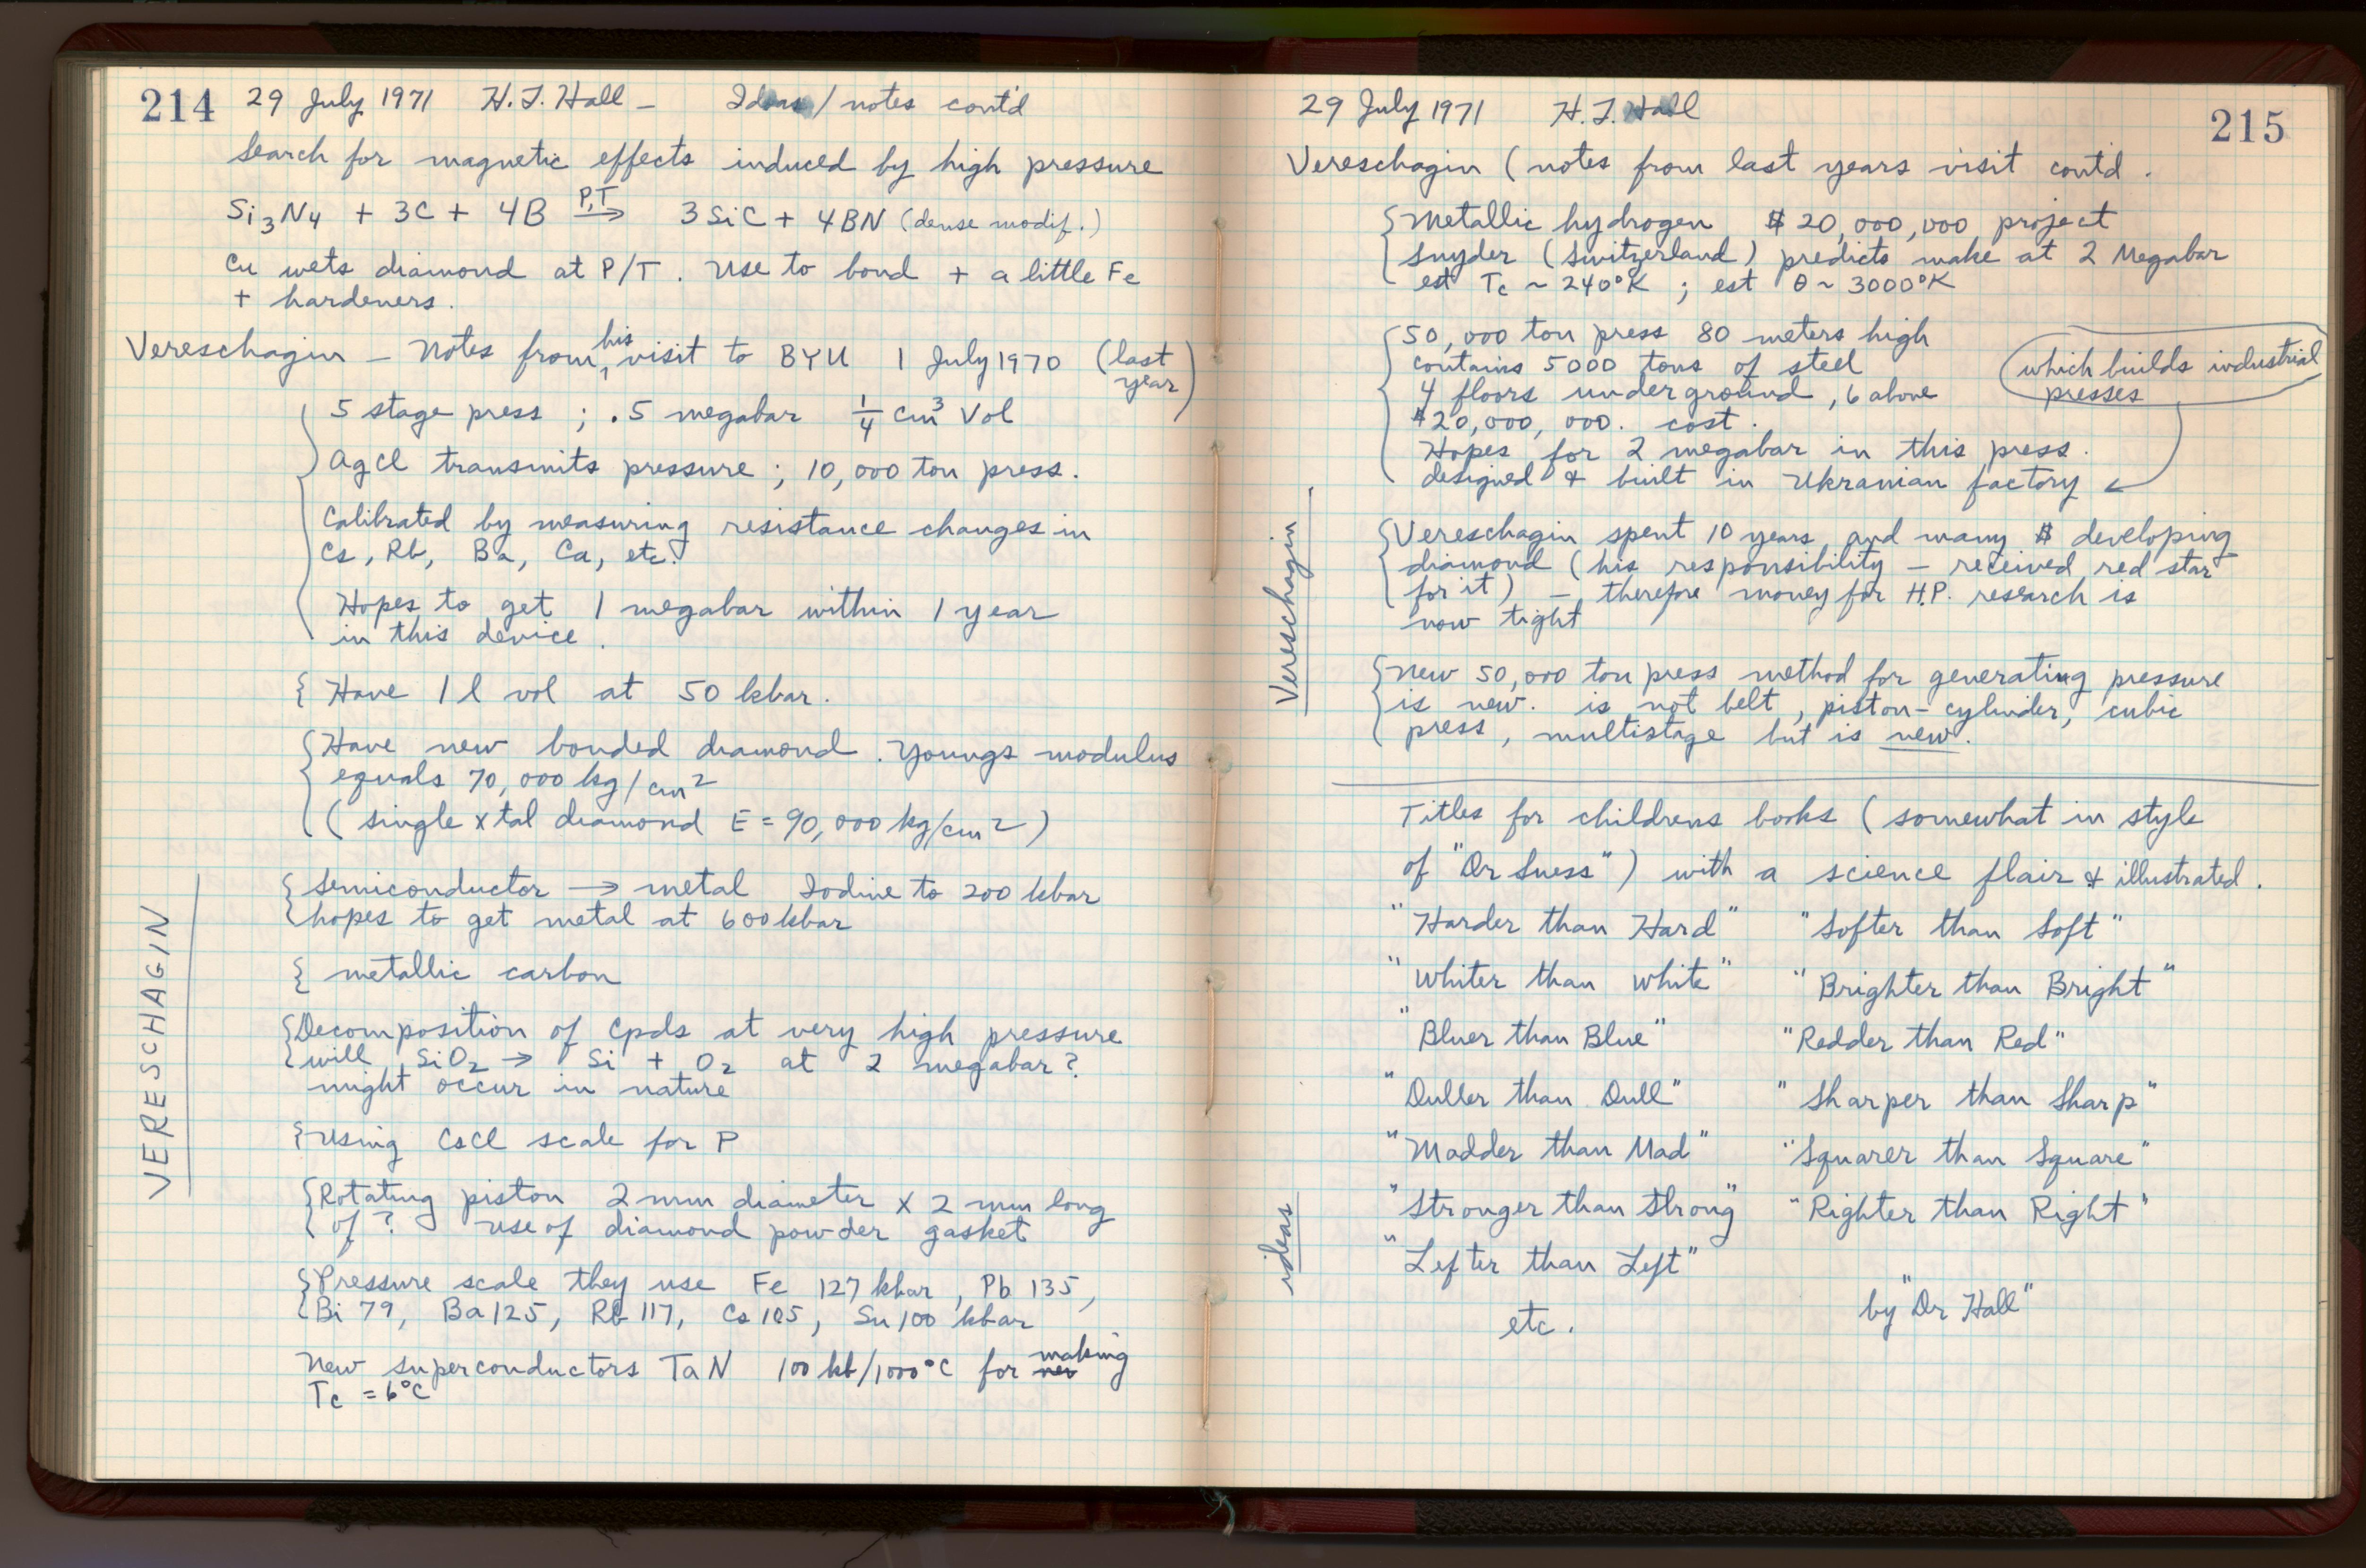 214 29 July 1971 H.T. Hall – Ideas / notes cont'd
Search for magnetic effects induced by high pressure
Si3N4 + 3C + 4B P,T → 3SiC + 4BN (dense modif.)
Cu wets diamond at P/T. Use to bond + a little Fe
+ hardeners.
Vereschagin – Notes from his visit to BYU 1 July 1970 (last year)
5 stage press ; .5 megabar 1/4 cm3 Vol
AgCl transmits pressure ; 10,000 ton press.
Calibrated by measuring resistance changes in
Cs, Rb, Ba, Ca, etc.
Hopes to get 1 megabar within 1 year
in this device.
Have 1 l vol at 50 kbar.
Have new bonded diamond. Youngs modulus
equals 70,000 kg/cm2
(single xtal diamond E = 90,000 kg/cm2)
VERESCHAGIN
Semiconductor → metal Iodine to 200 kbar
hopes to get metal at 600 kbar
metallic carbon
Decomposition of Cpds at very high pressure
will SiO2 → Si + O2 at 2 megabar?
might occur in nature
Using CsCl scale for P
Rotating piston 2 mm diameter x 2 mm long
of ? use of diamond powder gasket
Pressure scale they use Fe 127 kbar, Pb 135,
Bi 79, Ba 125, Rb 117, Cs 105, Sn 100 kbar
New superconductors TaN 100 kb/1000°C for making
Tc = 6°C
29 July 1971 H.T. Hall 215
Vereschagin (notes from last years visit cont'd.
Metallic hydrogen $20,000,000 project
Snyder (Switzerland) predicts make at 2 Megabar
est Tc ~ 240°K ; est θ ~ 3000°K
50,000 ton press 80 meters high
contains 5000 tons of steel
4 floors underground, 6 above
$20,000,000. cost.
Hopes for 2 megabar in this press.
designed & built in Ukranian factory
which builds industrial
presses
Vereschagin
Vereschagin spent 10 years and many $ developing
diamond (his responsibility – received red star
for it) – therefore money for H.P. research is
now tight
New 50,000 ton press method for generating pressure
is new. is not belt, piston-cylinder, cubic
press, multistage but is new.
Titles for childrens books (somewhat in style
of "Dr Suess") with a science flair & illustrated.
"Harder than Hard" "Softer than Soft"
"Whiter than White" "Brighter than Bright"
"Bluer than Blue" "Redder than Red"
"Duller than Dull" "Sharper than Sharp"
"Madder than Mad" "Squarer than Square"
"Stronger than Strong" "Righter than Right"
"Lefter than Left"
ideas
etc. by "Dr Hall"